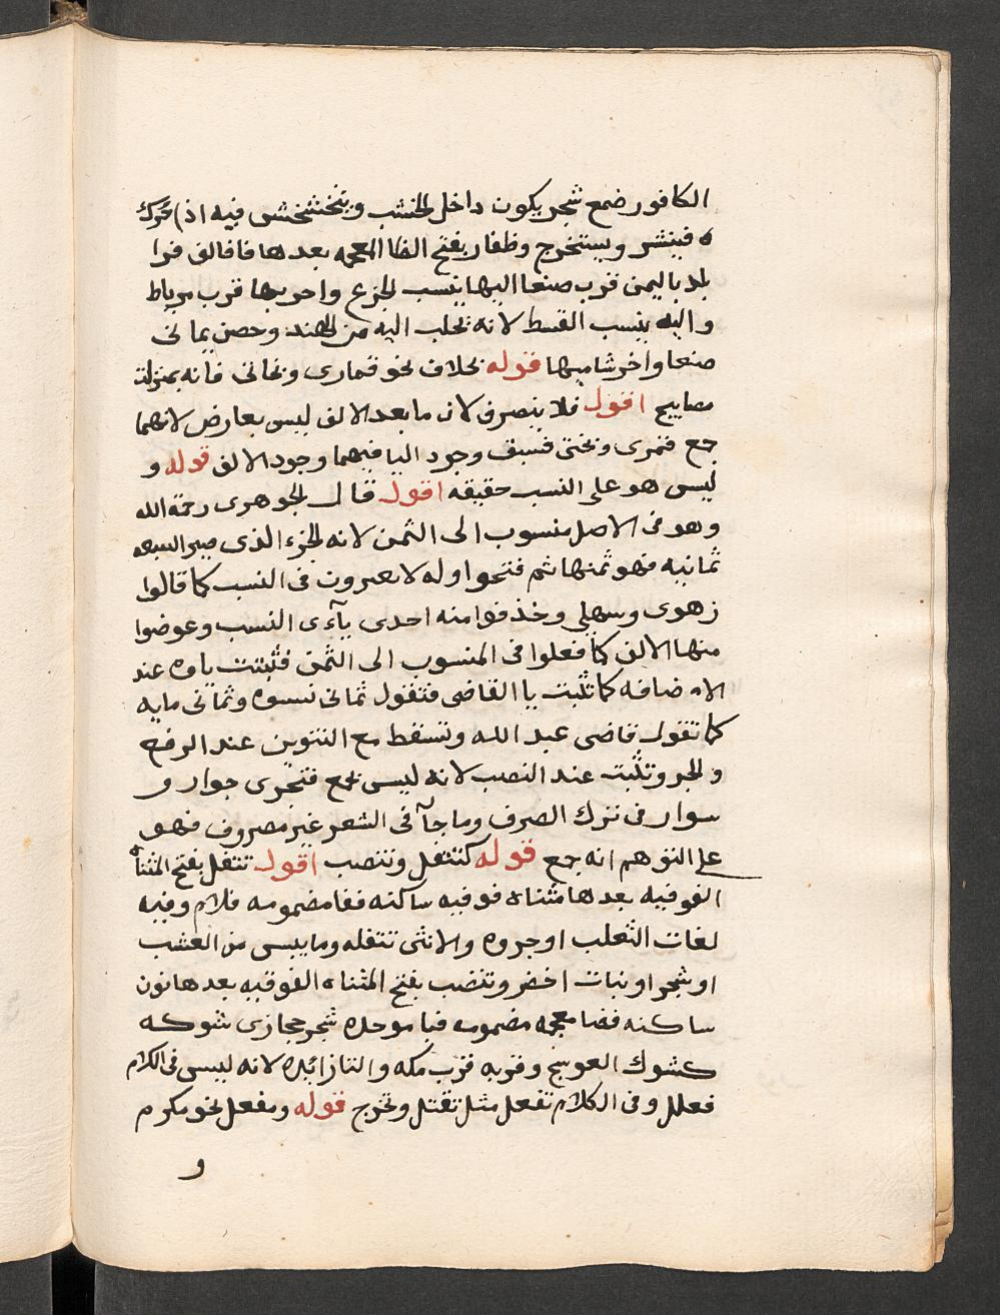 الكافور ضمع شجر يكون داخل الخشب ويتخشخش فيه اذا حرك
ه فينشر ويستخرج وظفار بفتح الظا المعجمه بعدها فا فالف فرا
بلد باليمن قرب صنعا اليها ينسب الجزع واخر بها قرب مرباط
واليه ينسب القسط لانه يجلب اليه من الهند وحصن يمانى
صنعا واخر شاميها قوله بخلاف نحو قمارى وبخاتى فانه بمنزلت
مصابيح اقول فلا ينصرف لان ما بعد الالف ليس بعارض لانهما
جمع قمرى وبختى فسبق وجود اليا فيهما وجود الالف قوله و
ليس هو على النسب حقيقه اقول قال الجوهرى رحمة الله
وهو فى الاصل منسوب الى الثمن لانه الجزء الذى صير السبعه
ثمانيه فهو ثمنها ثم فتحوا اوله لا يعيرون فى النسب كما قالوا
زهوى وسهلى وخذفوا منه احدى يآءى النسب وعوضوا
منها الالف كما فعلوا فى المنسوب الى الثمن فثبتت ياوه عند
الاضافه كما تثبت يا القاضى فتقول ثمانى نسوه وثمانى مايه
كما تقول قاضى عبد الله وتسقط مع التنوين عند الرفع
والجر وتثبت عند النصب لانه ليس بجمع فتجرى جوار و
سوار فى ترك الصرف وما جآ فى الشعر غير مصروف فهو
على التوهم انه جمع قوله كتتفل وتنصب اقول تتفل بفتح المثناه
الفوقيه بعدها مثناه فوقيه ساكنه ففا مضمومه فلام وفيه
لغات الثعلب اوجروه والانثى تتفله وما يبس من العشب
او شجر او نبات اخضر وتنضب بفتح المثناه الفوقيه بعدها نون
ساكنه فضا معجمه مضمومه فبا موحده شجر حجازى شوكه
كشوك العوسج وقريه قرب مكه والتا زائده لانه ليس فى الكلام
فعلل وفى الكلام تفعل مثل تقتل وتخرج قوله ومفعل نحو مكرم
و